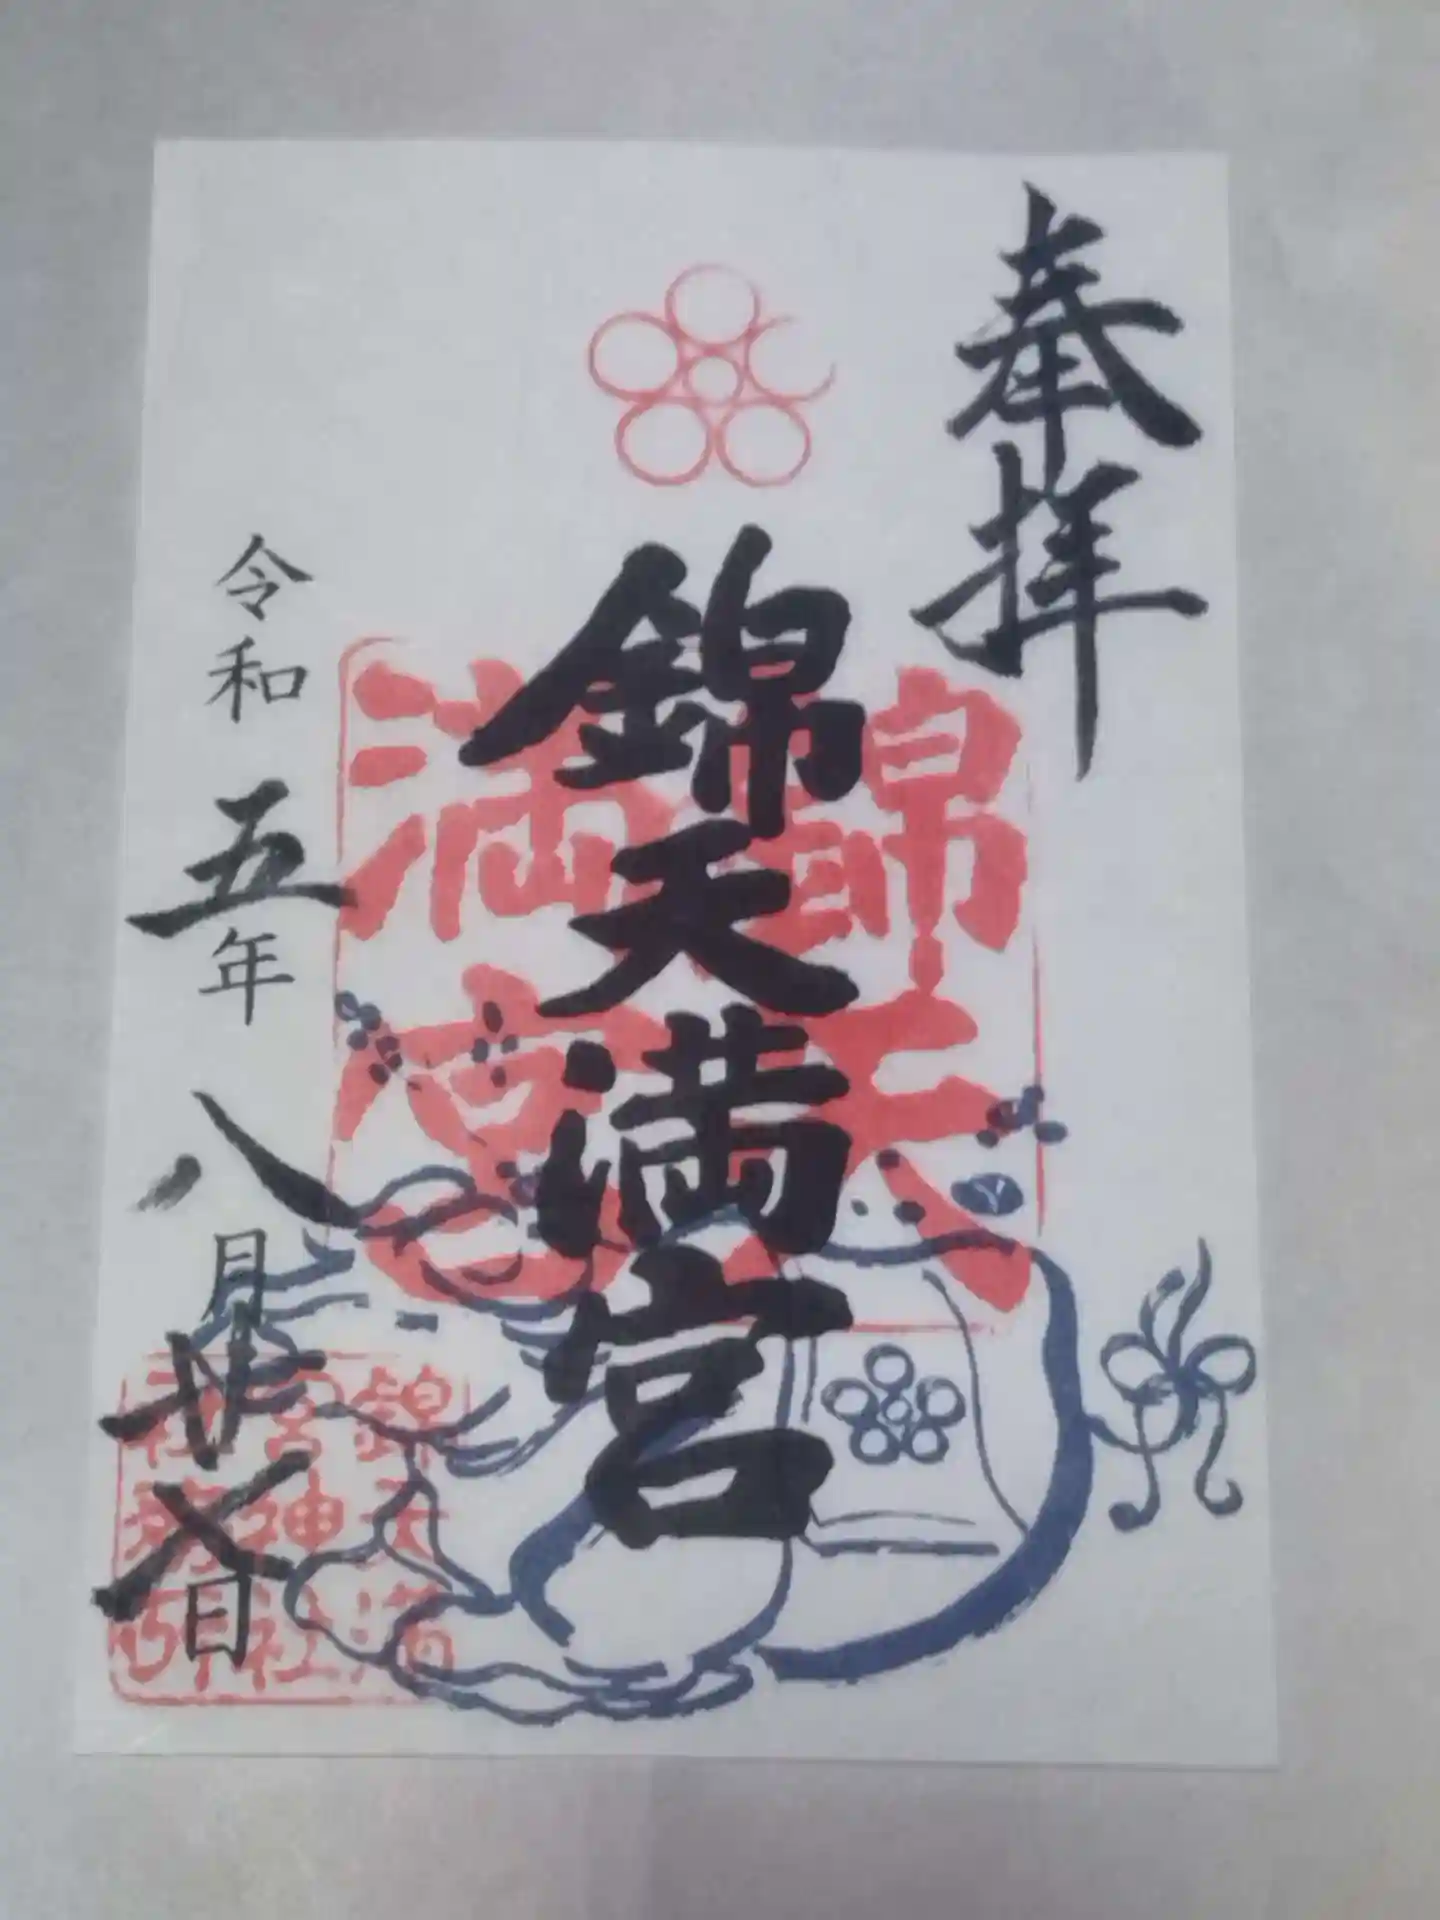 奉拝
錦天満宮
錦天
満宮
令和五年八月廿日
錦天満
宮神社
社務